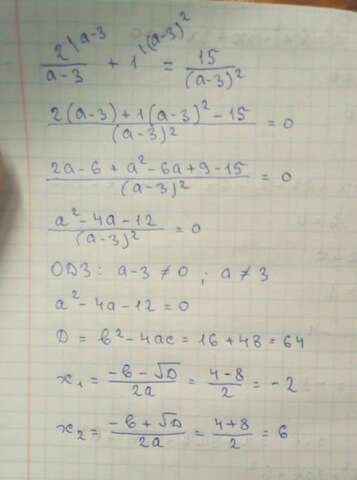 2^{\a-3}/(a-3) + 1^{\(a-3)²} = 15/(a-3)²
(2(a-3)+1(a-3)²-15)/(a-3)² = 0
(2a-6+a²-6a+9-15)/(a-3)² = 0
(a²-4a-12)/(a-3)² = 0
ОДЗ: a-3≠0 ; a≠3
a²-4a-12=0
D = b²-4ac = 16+48 = 64
x₁ = (-b-√D)/2a = (4-8)/2 = -2
x₂ = (-b+√D)/2a = (4+8)/2 = 6